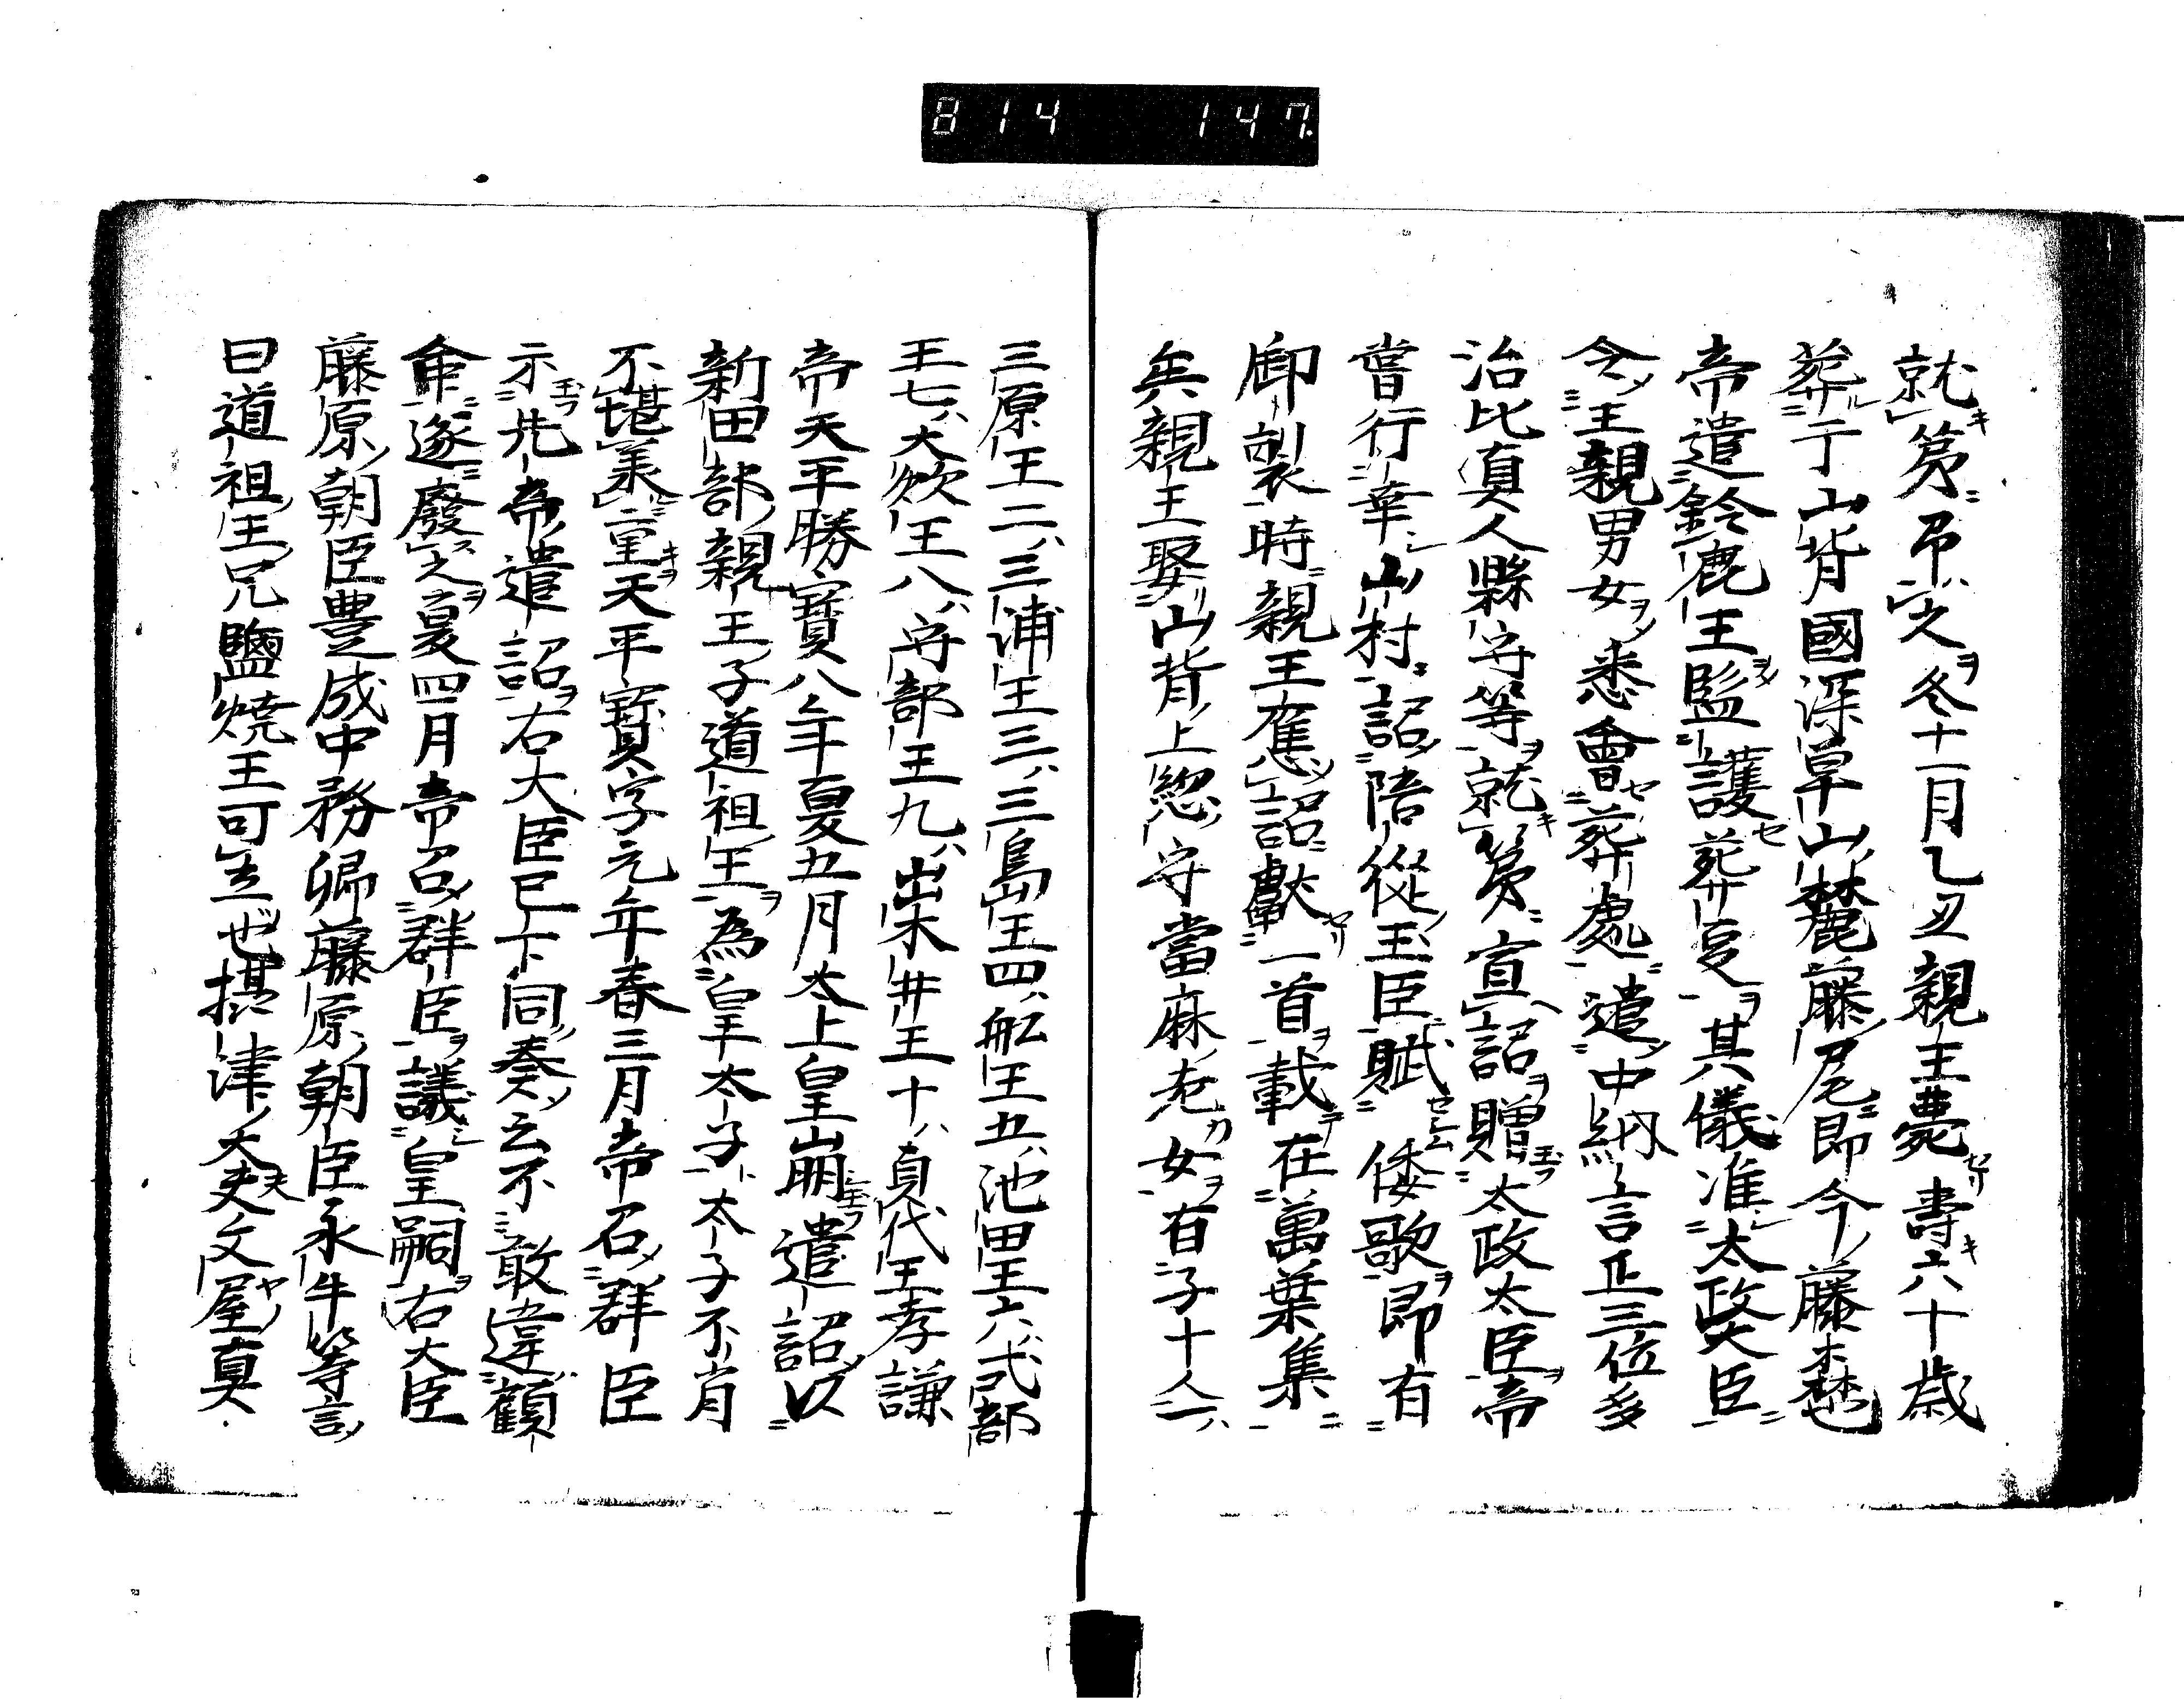 814 147
就第吊之冬十一月乙丑親王薨壽六十歳
葬于山背國深草山麓藤尾即今藤森也
帝遣鈴鹿王監護葬㕝其儀准太政大臣
令王親男女悉會葬處遣中納言正三位多
治比真人縣守等就第宣詔贈太政太臣帝
嘗行幸山村詔陪從王臣賦倭歌即有
御製時親王應詔獻一首載在萬葉集
矣親王娶山背上総守當麻老女有子十人一
三原王二三浦王三三島王四舩王五池田王六弐部
王七大炊王八守部王九出来井王十貞代王孝謙
帝天平勝寶八年夏五月太上皇崩遣詔以
新田部親王子道祖王為皇太子太子不肖
不堪美童天平寶字元年春三月帝召群臣
示先帝遣詔右大臣已下同奏云不敢違顧
命遂廢之夏四月帝召群臣議皇嗣右大臣
藤原朝臣豊成中務卿藤原朝臣永手等言
曰道祖王兄鹽燒王可立也攝津大夫文屋真